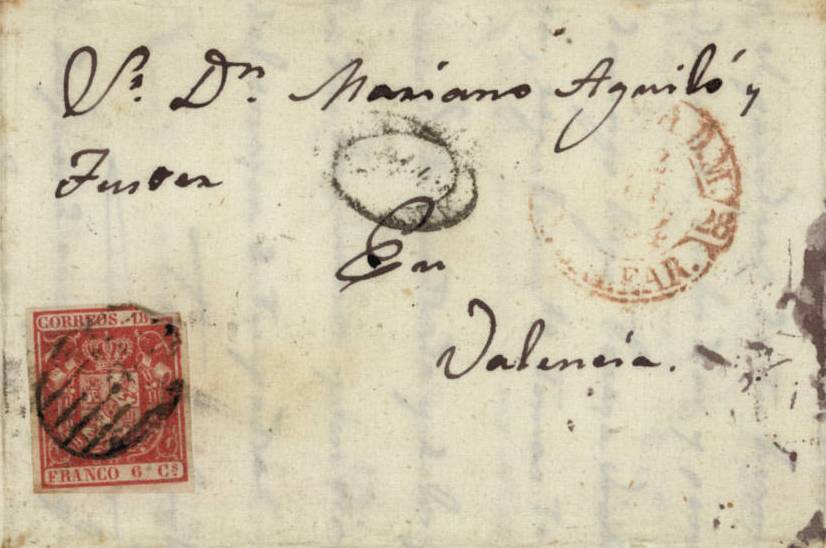 Sr. Dn. Mariano Aguiló y
Fuster
En
Valencia.
CORREOS. 18
FRANCO 6 Cs
LEAR.